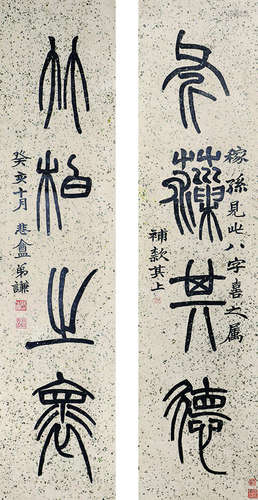 藻其德
稼孫見此八字喜之属
補款其上
竹柏之褱
癸亥十月悲盦弟謙